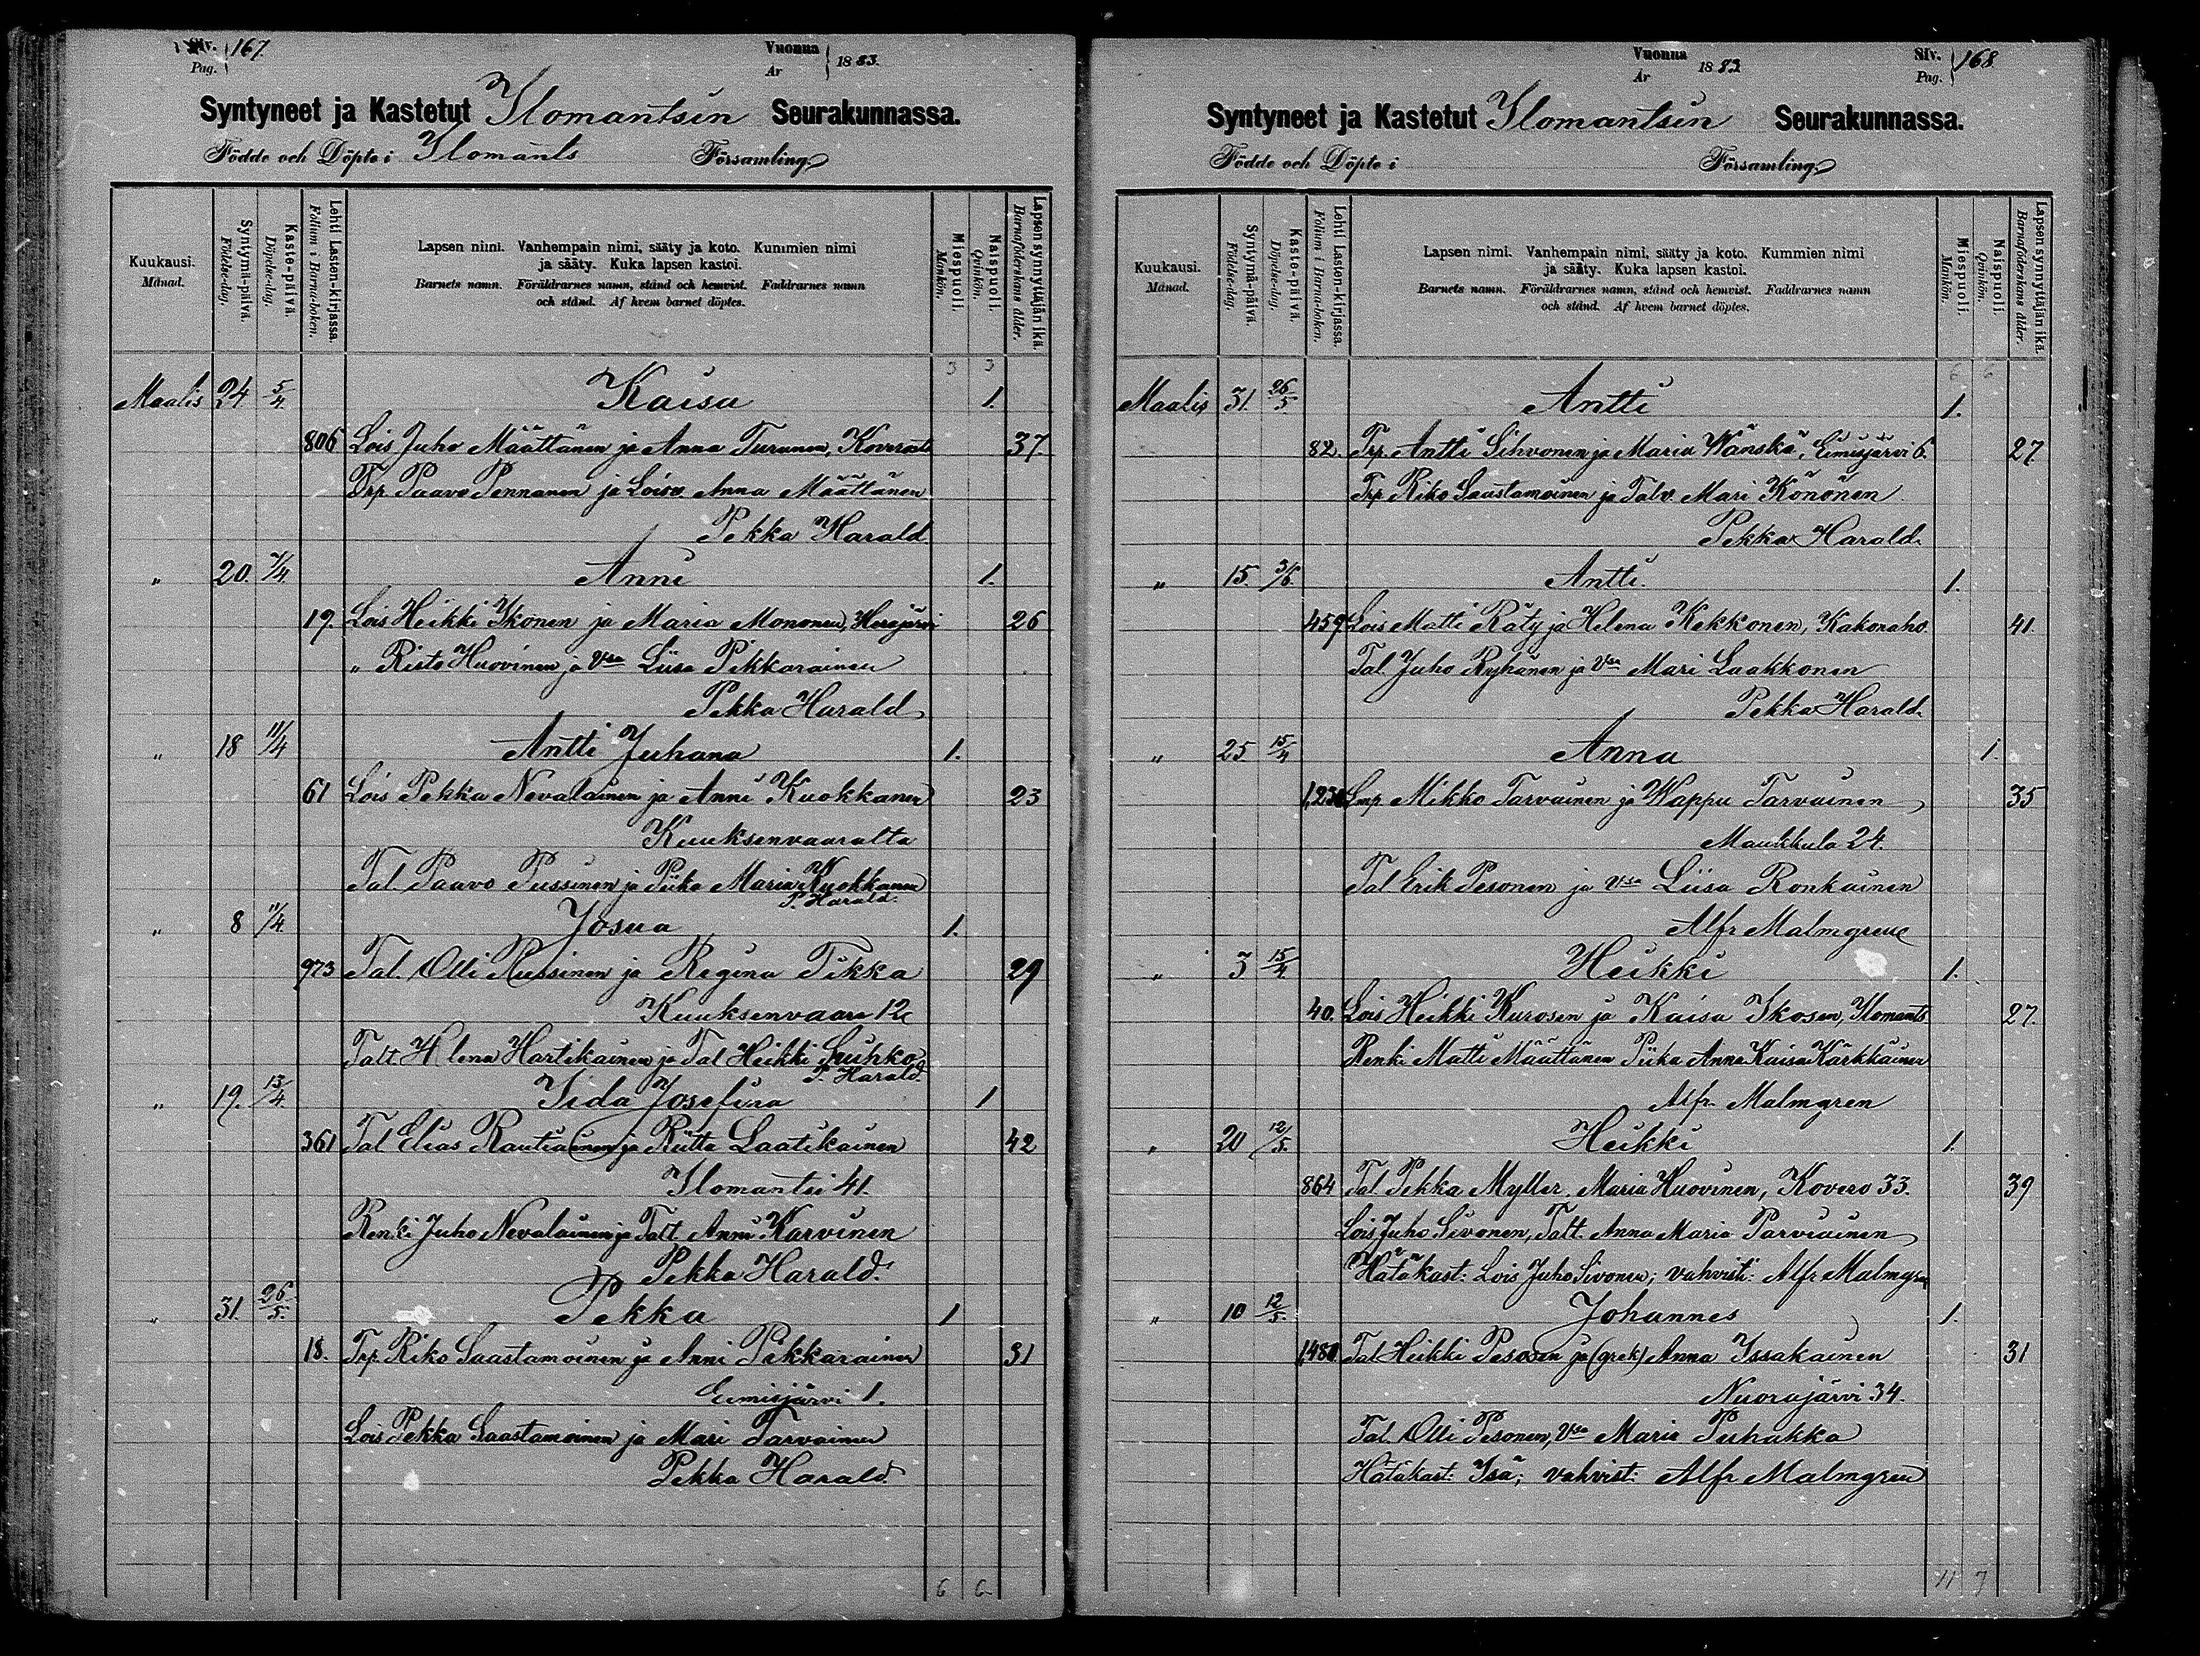 Siv. Pag. 167.
Vuonna År 1883.
Syntyneet ja Kastetut Ilomantsin Seurakunnassa.
Födde och Döpte i Ilomants Församling.
Kuukausi. Månad.
Syntymä-päivä. Födelse-dag.
Kaste-päivä. Döpelse-dag.
Lehti Lasten-kirjassa. Folium i Barna-boken.
Lapsen nimi. Vanhempain nimi, sääty ja koto. Kummien nimi
ja sääty. Kuka lapsen kastoi.
Barnets namn. Föräldrarnes namn, stånd och hemvist. Faddrarnes namn
och stånd. Af hvem barnet döptes.
Miespuoli. Mankön.
Naispuoli. Qvinkön.
Lapsen synnyttäjän ikä. Barnaföderskans ålder.
3 3
Maalis 24 5/4. Kaisa 1.
806 Lois Juho Määttänen ja Anna Turunen, 37.
Trp Paavo Pennanen ja Lois Anna Määttänen
Pekka Harald.
" 20. 7/4. Anni 1.
19. Lois Heikki Ikonen ja Maria Mononen, Herajärvi 26
" Risto Huovinen ja Vsa Liisa Pikkarainen
Pekka Harald
" 18 11/4 Antti Juhana 1.
61 Lois Pekka Nevalainen ja Anni Kuokkanen 23
Kuuksenvaaralta
Tal. Paavo Pussinen ja Piika Maria Kuokkanen
P. Harald.
" 8 11/4 Josua 1.
973 Tal. Olli Pussinen ja Regina Tikka 29
Kuuksenvaara 12
Talt. Helena Hartikainen ja Tal Heikki Suhko
P. Harald.
" 19. 13/4. Iida Josefina 1
361 Tal Elias Rautiainen ja Riitta Laatikainen 42
Ilomantsi 41.
Renki Juho Nevalainen ja Talt Anni Karvinen
Pekka Harald.
" 31. 26/5. Pekka 1
18. Trp. Riko Saastamoinen ja Anni Pikkarainen 31
Eimisjärvi 1.
Lois Pekka Saastamoinen ja Mari Tarvainen
Pekka Harald.
6 6
Vuonna År 1883.
Siv. Pag. 168.
Syntyneet ja Kastetut Ilomantsin Seurakunnassa.
Födde och Döpte i Församling.
Kuukausi. Månad.
Syntymä-päivä. Födelse-dag.
Kaste-päivä. Döpelse-dag.
Lehti Lasten-kirjassa. Folium i Barna-boken.
Lapsen nimi. Vanhempain nimi, sääty ja koto. Kummien nimi
ja sääty. Kuka lapsen kastoi.
Barnets namn. Föräldrarnes namn, stånd och hemvist. Faddrarnes namn
och stånd. Af hvem barnet döptes.
Miespuoli. Mankön.
Naispuoli. Qvinkön.
Lapsen synnyttäjän ikä. Barnaföderskans ålder.
6 6
Maalis 31. 26/5 Antti 1.
82. Trp. Antti Sihvonen ja Maria Wänskä, Eimisjärvi 6. 27.
Trp Riko Saastamoinen ja Talv. Mari Könönen
Pekka Harald.
" 15. 3/6. Antti. 1.
459 Lois Matti Räty ja Helena Kekkonen, Kakonaho 41.
Tal. Juho Ryhänen ja Vsa Mari Laakkonen
Pekka Harald.
" 25 15/4 Anna 1.
Lmp Mikko Tarvainen ja Wappu Tarvainen 35
Maukkula 24.
Tal Erik Pesonen ja Vsa Liisa Ronkainen
Alfr Malmgren
" 3 15/4. Heikki 1.
40. Lois Heikki Kurosen ja Kaisa Ikosen, Ilomants 27.
Renki Matti Määttänen Piika Anna Kaisa Kärkkäinen
Alfr. Malmgren
" 20 12/5. Heikki 1.
864 Tal Pekka Myller, Maria Huovinen, Kovero 33. 39
Lois Juho Sivonen, Talt. Anna Maria Parviainen
Hätäkast: Lois Juho Sivonen; vahvisti: Alfr Malmgren
" 10 12/5. Johannes 1.
Tal Heikki Pesosen ja (grek) Anna Issakainen 31
Nuorajärvi 34.
Tal. Olli Pesonen, Vsa Maria Puhakka
Hätäkast: Isä; vahvist: Alfr Malmgren
11 7